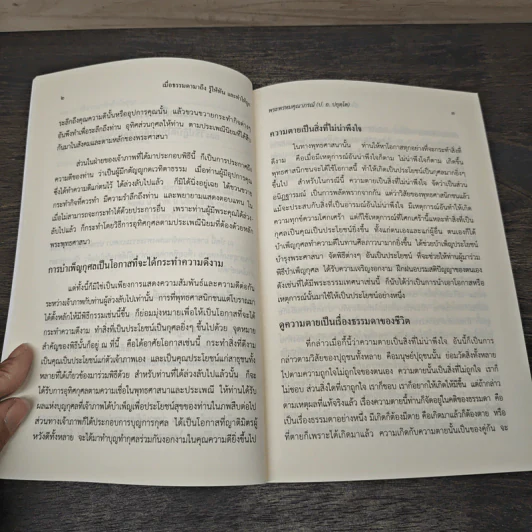 ๒
เมื่อธรรมดามาถึง รู้ให้ทัน และทำให้ถูก
ระลึกถึงคุณความดีนั้นหรืออุปการคุณนั้น แล้วขวนขวายกระทำกิจต่างๆ
อันพึงทำเพื่อระลึกถึงท่าน อุทิศส่วนกุศลให้ท่าน ตามประเพณีนิยมที่ได้สืบ
กันมาในสังคมและตามหลักของพระศาสนา
ส่วนในฝ่ายของเจ้าภาพที่ได้มาประกอบพิธีนี้ ก็เป็นการประกาศถึง
ความดีของท่าน ว่าเป็นผู้มีกตัญญูกตเวทิตาธรรม เมื่อท่านผู้มีอุปการคุณ
ซึ่งได้ทำความดีแก่ตนไว้ ได้ล่วงลับไปแล้ว ก็มิได้นิ่งอยู่เฉย ได้ขวนขวาย
กระทำกิจที่ควรทำ มีความรำลึกถึงท่าน และพยายามแสดงตอบแทน ใน
เมื่อไม่สามารถจะกระทำได้ด้วยประการอื่น เพราะท่านผู้มีพระคุณได้ล่วง
ลับไปแล้ว ก็กระทำโดยวิธีการอุทิศกุศลตามประเพณีนิยมที่ดีงามด้วยหลัก
พระพุทธศาสนา
การบำเพ็ญกุศลเป็นโอกาสที่จะได้กระทำความดีงาม
แต่ทั้งนี้ก็มิใช่เป็นเพียงการแสดงความสัมพันธ์และความดีต่อกัน
ระหว่างเจ้าภาพกับท่านผู้ล่วงลับไปเท่านั้น การที่พุทธศาสนิกชนแต่โบราณมา
ได้ตั้งหลักให้มีพิธีกรรมเช่นนี้ขึ้น ก็ย่อมมุ่งหมายเพื่อให้เป็นโอกาสที่จะได้
กระทำความดีงาม ทำสิ่งที่เป็นประโยชน์เป็นกุศลยิ่งๆ ขึ้นไปด้วย จุดหมาย
สำคัญของพิธีนั้นก็อยู่ ณ ที่นี้ คือได้อาศัยโอกาสเช่นนี้ กระทำสิ่งที่ดีงาม
เป็นคุณเป็นประโยชน์แก่ตัวเจ้าภาพเอง และเป็นคุณประโยชน์แก่สาธุชน
ทั้งหลายที่ได้เกี่ยวข้องมาร่วมพิธีด้วย สำหรับท่านที่ได้ล่วงลับไปแล้วนั้น ก็จะ
ได้รับการอุทิศกุศลตามความเชื่อในพุทธศาสนาและประเพณี ให้ท่านได้รับ
ผลแห่งบุญกุศลที่เจ้าภาพได้บำเพ็ญเพื่อประโยชน์สุขของท่านในภพสืบต่อไป
ส่วนทางเจ้าภาพก็ได้ประกอบการบุญการกุศล ได้เป็นโอกาสที่ญาติมิตรผู้
หวังดีทั้งหลาย จะได้มาทำบุญทำกุศลร่วมกันงอกงามในคุณความดียิ่งขึ้นไป
พระพรหมคุณาภรณ์ (ป. อ. ปยุตฺโต)
๓
ความตายเป็นสิ่งที่ไม่น่าพึงใจ
ในทางพุทธศาสนานั้น ท่านให้หาโอกาสทุกอย่างที่จะกระทำสิ่งที่
ดีงาม คือเมื่อมีเหตุการณ์อันน่าพึงใจก็ตาม ไม่น่าพึงใจก็ตาม เกิดขึ้น
พุทธศาสนิกชนจะได้ใช้โอกาสนี้ ทำให้เกิดเป็นประโยชน์เป็นกุศลมากยิ่งๆ
ขึ้นไป สำหรับในกรณีนี้ ความตายเป็นสิ่งที่ไม่น่าพึงใจ จัดว่าเป็นส่วน
อนิฏฐารมณ์ เป็นการพลัดพรากจากกัน แต่ว่าวิสัยของพุทธศาสนิกชนแล้ว
แม้จะประสบกับสิ่งที่เป็นอารมณ์อันไม่น่าพึงใจ มีเหตุการณ์อันทำให้เกิด
ความทุกข์ความโศกเศร้า แต่ก็ใช้เหตุการณ์ที่โศกเศร้านี้แหละทำสิ่งที่เป็น
กุศลเป็นคุณเป็นประโยชน์ยิ่งขึ้น ทั้งแก่ตนเองและแก่ผู้อื่น ตนเองก็ได้
บำเพ็ญกุศลทำความดีในทานศีลภาวนามากยิ่งขึ้น ได้ช่วยบำเพ็ญประโยชน์
บำรุงพระศาสนา จัดพิธีต่างๆ อันเป็นประโยชน์ ที่จะช่วยให้ท่านผู้มาร่วม
พิธีบำเพ็ญกุศล ได้รับความเจริญงอกงาม ฝึกฝนอบรมสติปัญญาของตนเอง
ดังเช่นที่ได้มีพระธรรมเทศนาเช่นนี้ ก็นับได้ว่าเป็นการนำเอาโอกาสหรือ
เหตุการณ์นั้นมาใช้ให้เป็นประโยชน์อย่างหนึ่ง
ดูความตายเป็นเรื่องธรรมดาของชีวิต
ที่กล่าวเมื่อกี้นี้ว่าความตายเป็นสิ่งที่ไม่น่าพึงใจ อันนี้ก็เป็นการ
กล่าวตามวิสัยของปุถุชนทั้งหลาย คือมนุษย์ปุถุชนนั้น ย่อมวัดสิ่งทั้งหลาย
ไปตามความถูกใจไม่ถูกใจของตนเอง ความตายนั้นเป็นสิ่งที่ไม่ถูกใจ เราก็
ไม่ชอบ ส่วนสิ่งใดที่เราถูกใจ เราก็ชอบ เราก็อยากให้เกิดให้มีขึ้น แต่ถ้ากล่าว
ตามเหตุผลที่แท้จริงแล้ว เรื่องความตายนี้ท่านก็จัดอยู่ในคติของธรรมดา คือ
เป็นเรื่องธรรมดาอย่างหนึ่ง มีเกิดก็ต้องมีตาย คือเกิดมาแล้วก็ต้องตาย หรือ
ที่ตายก็เพราะได้เกิดมาแล้ว ความเกิดกับความตายนั้นเป็นของคู่กัน จะ